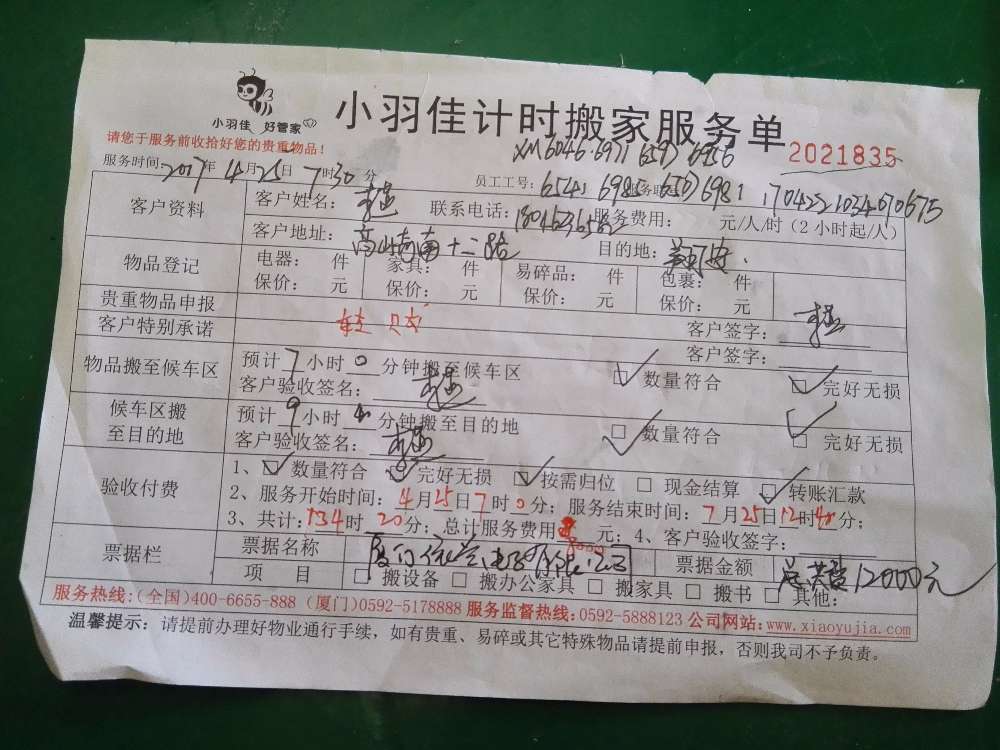 小羽佳 好管家
小羽佳计时搬家服务单
请您于服务前收拾好您的贵重物品！
2021835
服务时间：2017年4月25日7时30分
员工工号：
客户资料
客户姓名：
联系电话：
服务费用： 元/人/时（2小时起/人）
客户地址：
目的地：
物品登记
电器： 件 家具： 件 易碎品： 件 包裹： 件
保价： 元 保价： 元 保价： 元 保价： 元
贵重物品申报
客户签字：
客户特别承诺
客户签字：
物品搬至候车区
预计7小时0分钟搬至候车区 □数量符合 □完好无损
客户验收签名：
候车区搬至目的地
预计9小时 分钟搬至目的地 □数量符合 □完好无损
客户验收签名：
验收付费
1、□数量符合 □完好无损 □按需归位 □现金结算 □转账汇款
2、服务开始时间：4月25日7时0分；服务结束时间：7月25日12时40分；
3、共计：134时20分；总计服务费用 元；4、客户验收签字：
票据栏
票据名称
票据金额 12000元
项 目 □搬设备 □搬办公家具 □搬家具 □搬书 □其他：
服务热线：(全国)400-6655-888 (厦门)0592-5178888 服务监督热线：0592-5888123 公司网站：www.xiaoyujia.com
温馨提示：请提前办理好物业通行手续，如有贵重、易碎或其它特殊物品请提前申报，否则我司不予负责。